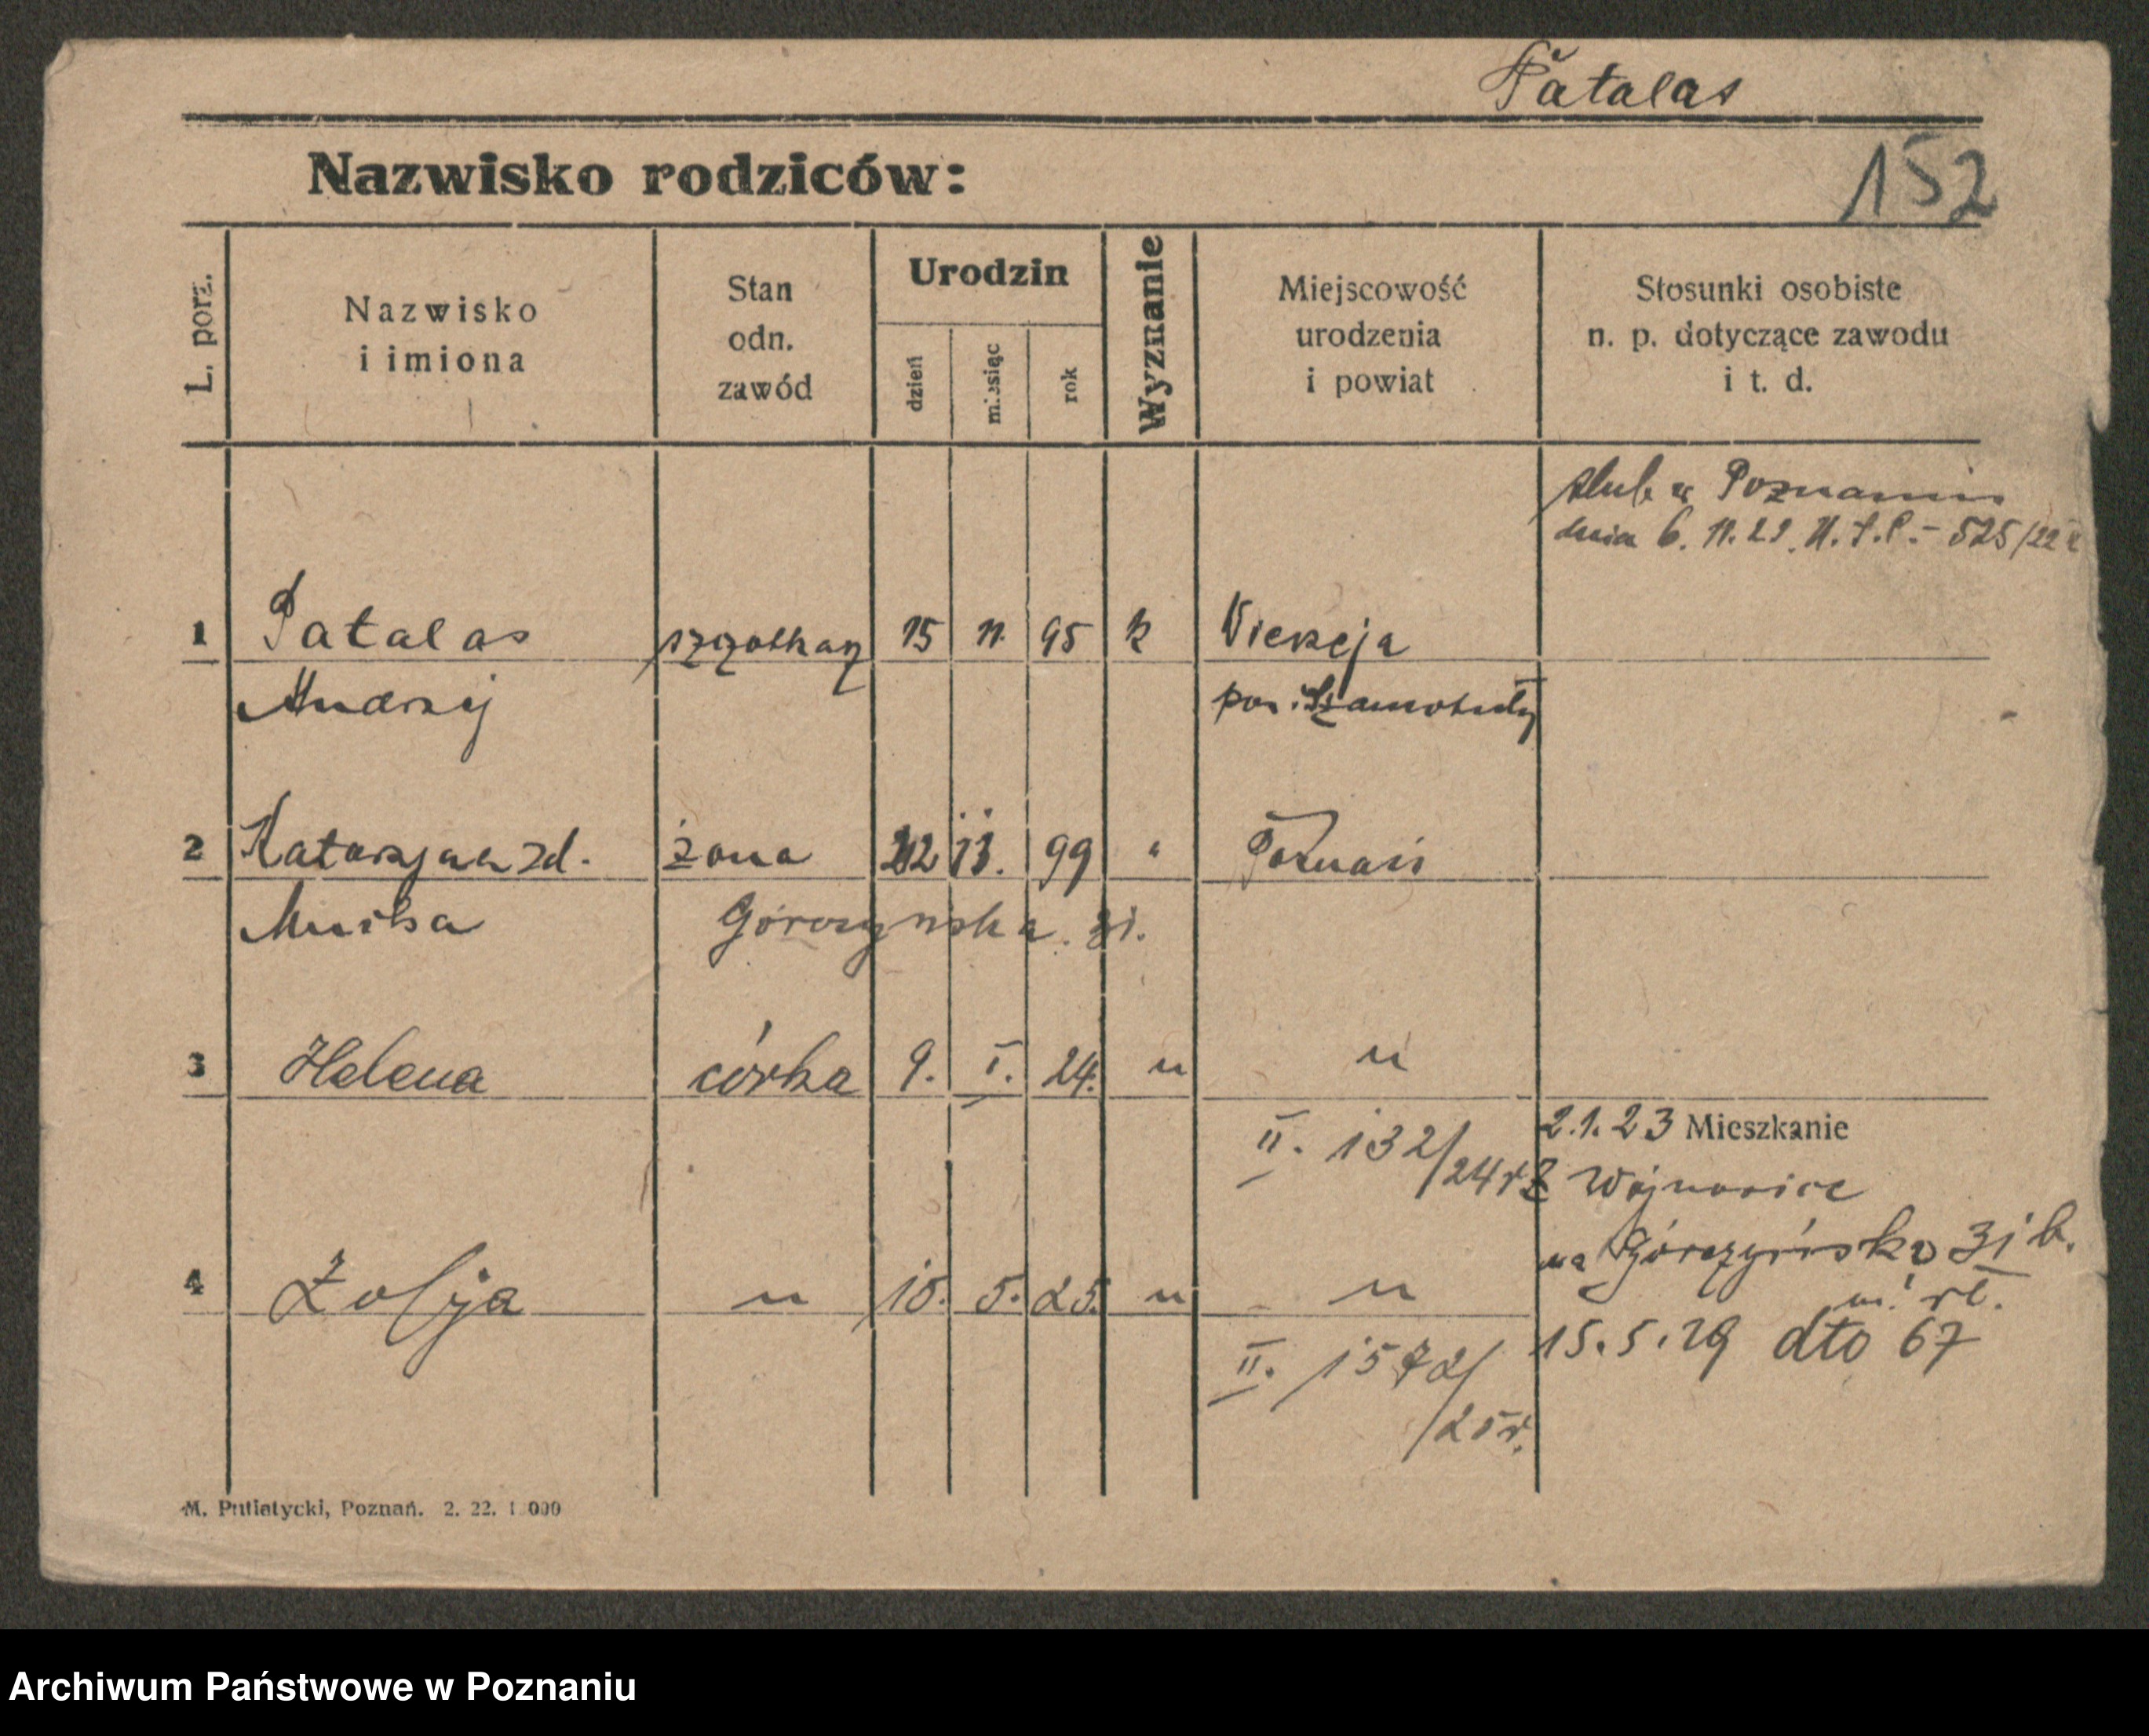 Patalas
Nazwisko rodziców:
152
L. porz.
Nazwisko
i imiona
Stan
odn.
zawód
Urodzin
dzień
miesiąc
rok
Wyznanie
Miejscowość
urodzenia
i powiat
Stosunki osobiste
n. p. dotyczące zawodu
i t. d.
ślub w Poznaniu
dnia 6. 11. 22. 525/22
1 Patalas 15 11. 95 k
Andrzej pow. Szamotuły
2 Katarzyna zd. żona 11. 99 " Poznań
Górczyńska. 31.
3 Helena córka 9. I. 24. " "
II. 132/24 r
2.1.23 Mieszkanie
Z Wojnowice
na Górczyńską 31 b.
4 Zofja " 15. 5. 25. " "
15.5.29 dto 67
II. 1572/
/25 r.
M. Putiatycki, Poznań. 2. 22. 1 000
Archiwum Państwowe w Poznaniu